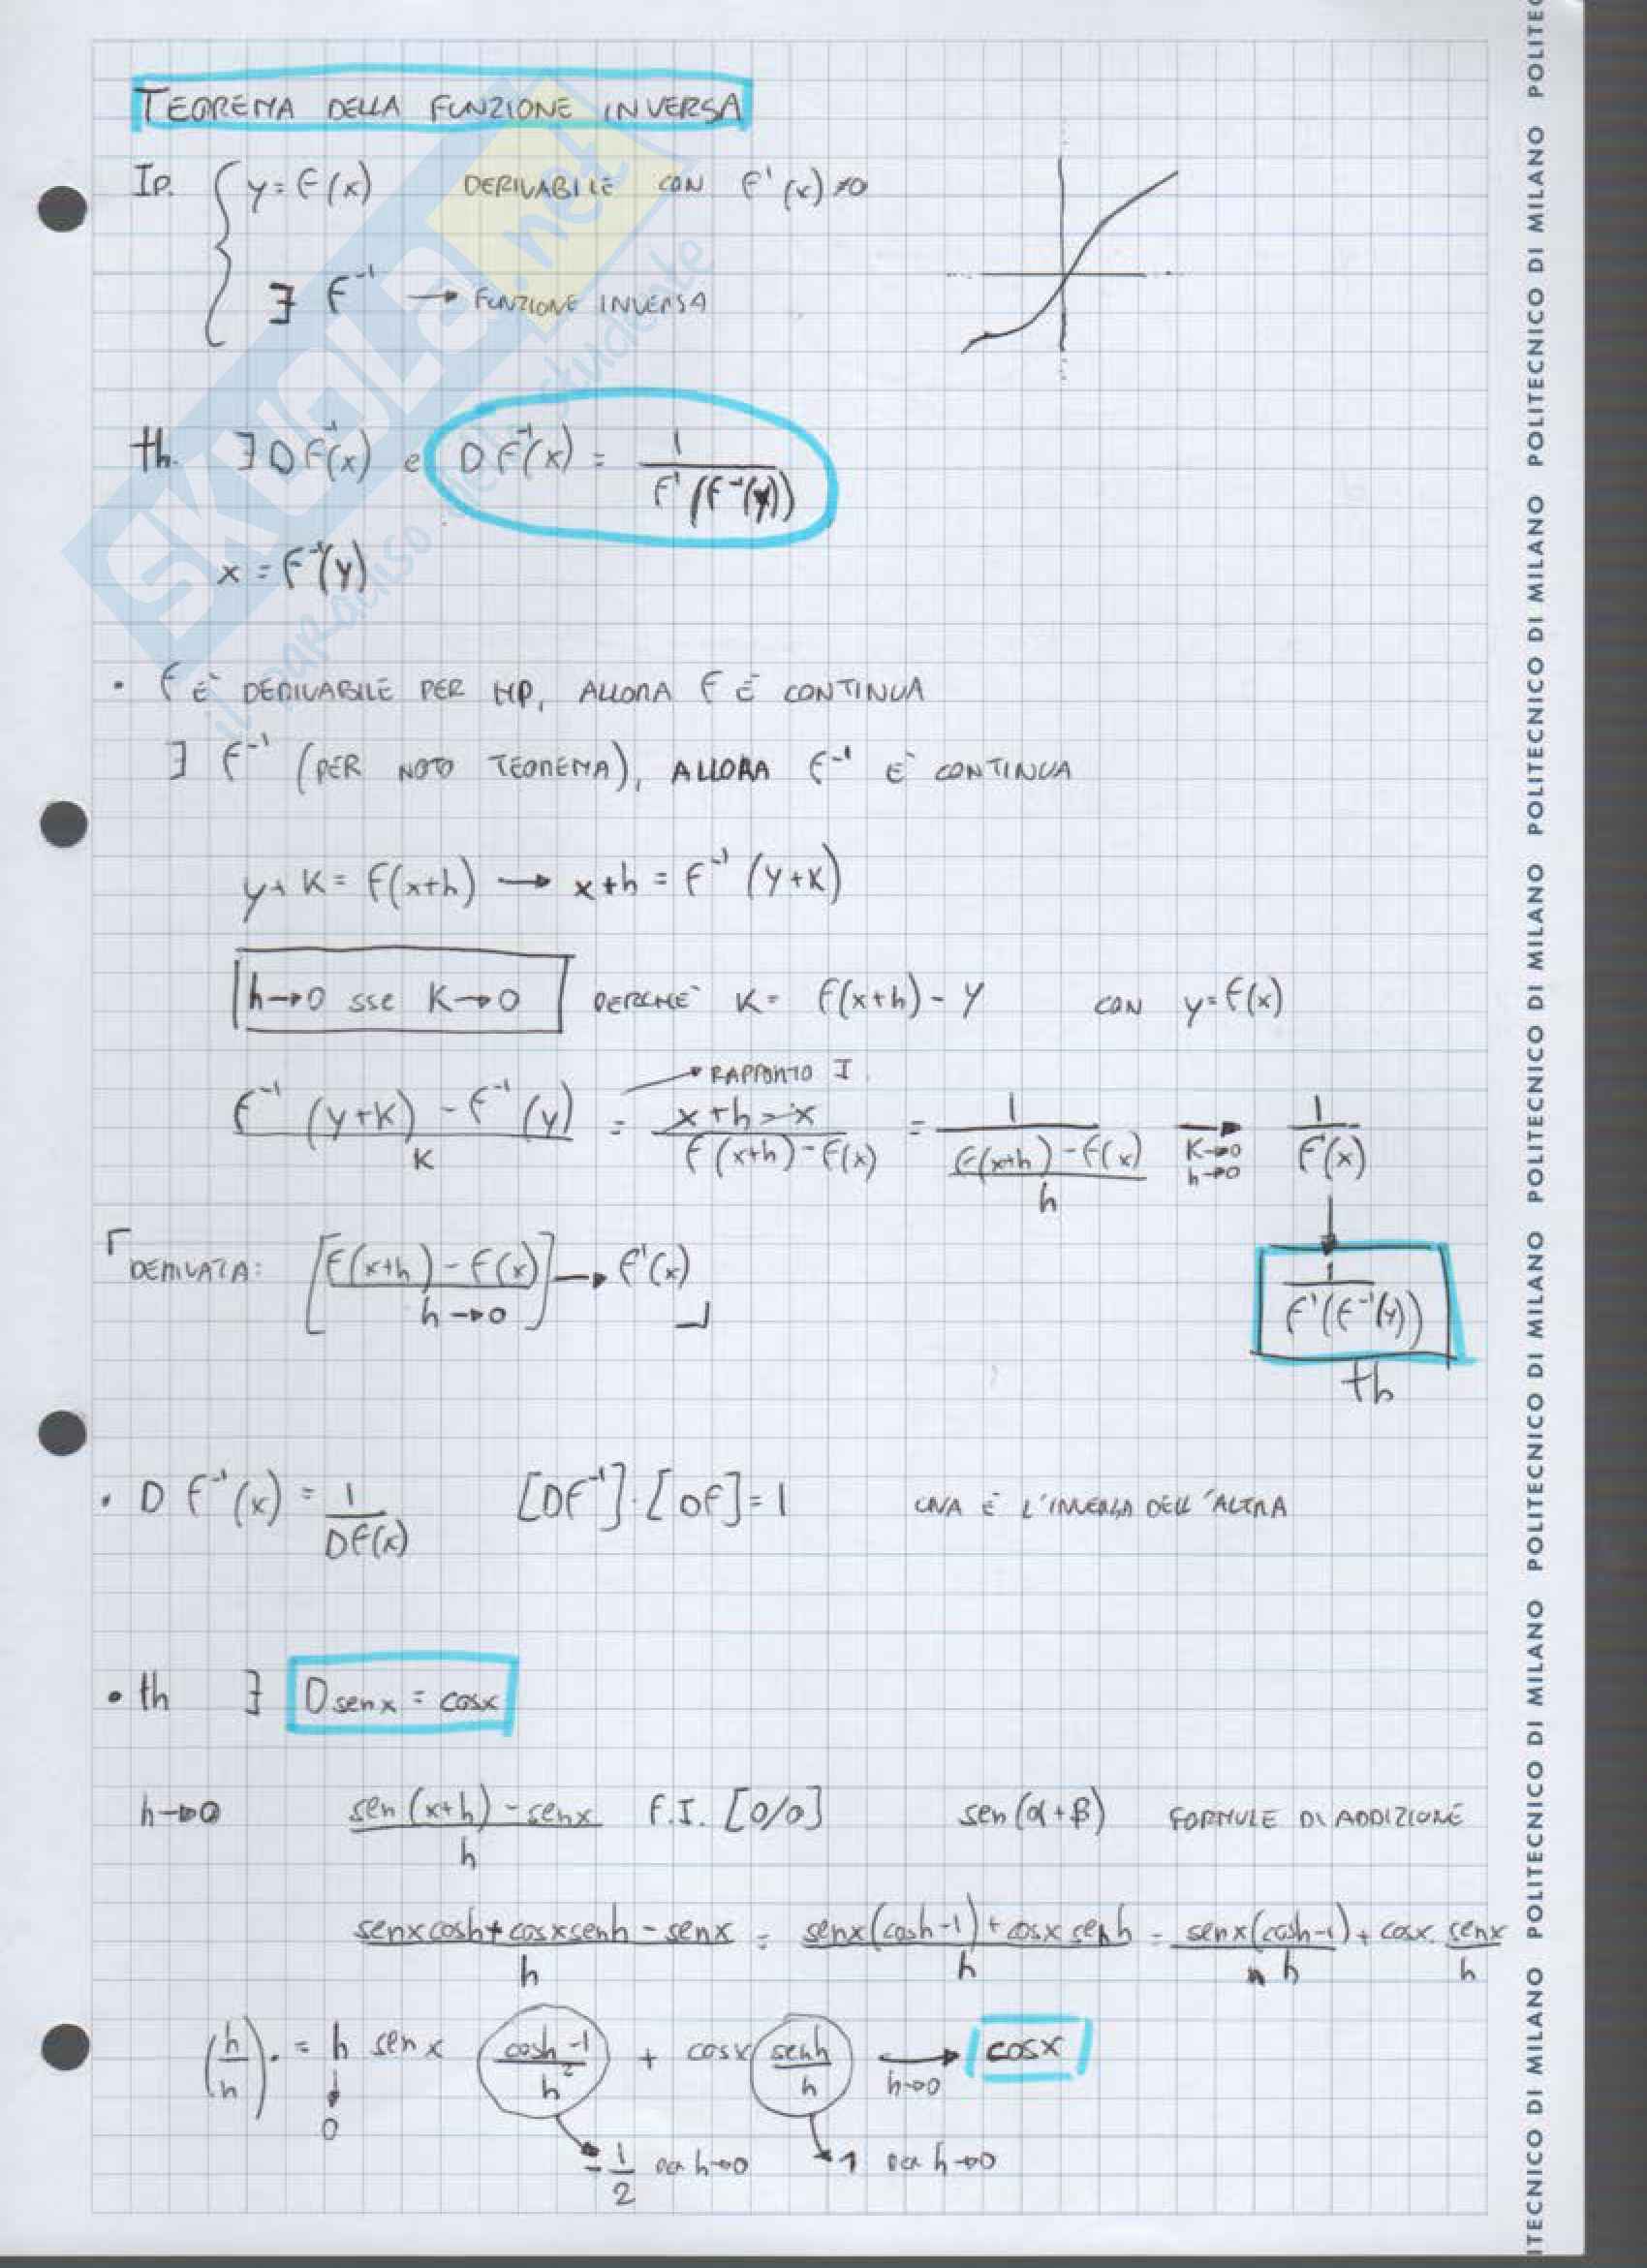 TEOREMA DELLA FUNZIONE INVERSA
Ip. { y = f(x) DERIVABILE CON f'(x) ≠ 0
∃ f⁻¹ → FUNZIONE INVERSA
th. ∃ D f⁻¹(x) e D f⁻¹(x) = 1 / f'(f⁻¹(y))
x = f⁻¹(y)
• f È DERIVABILE PER HP, ALLORA f È CONTINUA
∃ f⁻¹ (PER NOTO TEOREMA), ALLORA f⁻¹ È CONTINUA
y + K = f(x+h) → x+h = f⁻¹(y+K)
h→0 sse K→0 PERCHÈ K = f(x+h) - y CON y = f(x)
→ RAPPORTO I.
(f⁻¹(y+K) - f⁻¹(y)) / K = (x+h-x) / (f(x+h) - f(x)) = 1 / ((f(x+h) - f(x)) / h) → K→0 h→0 1 / f'(x)
↓
DERIVATA: [(f(x+h) - f(x)) / h→0] → f'(x)
1 / f'(f⁻¹(y))
th
• D f⁻¹(x) = 1 / Df(x) [Df⁻¹]·[Df] = 1 UNA È L'INVERSA DELL'ALTRA
• th ∃ D senx = cosx
h→0 (sen(x+h) - senx) / h F.I. [0/0] sen(α+β) FORMULE DI ADDIZIONE
(senxcosh + cosxsenh - senx) / h = (senx(cosh-1) + cosx senh) / h = senx(cosh-1) / h + cosx · senx / h
(h/h)· = h senx (cosh-1) / h² + cosx senh / h → h→0 cosx
↓
0
-1/2 PER h→0 1 PER h→0
SKUOLA.net
il paradiso dello studente
POLITECNICO DI MILANO POLITECNICO DI MILANO POLITECNICO DI MILANO POLITECNICO DI MILANO POLITECNICO DI MILANO POLITECNICO DI MILANO